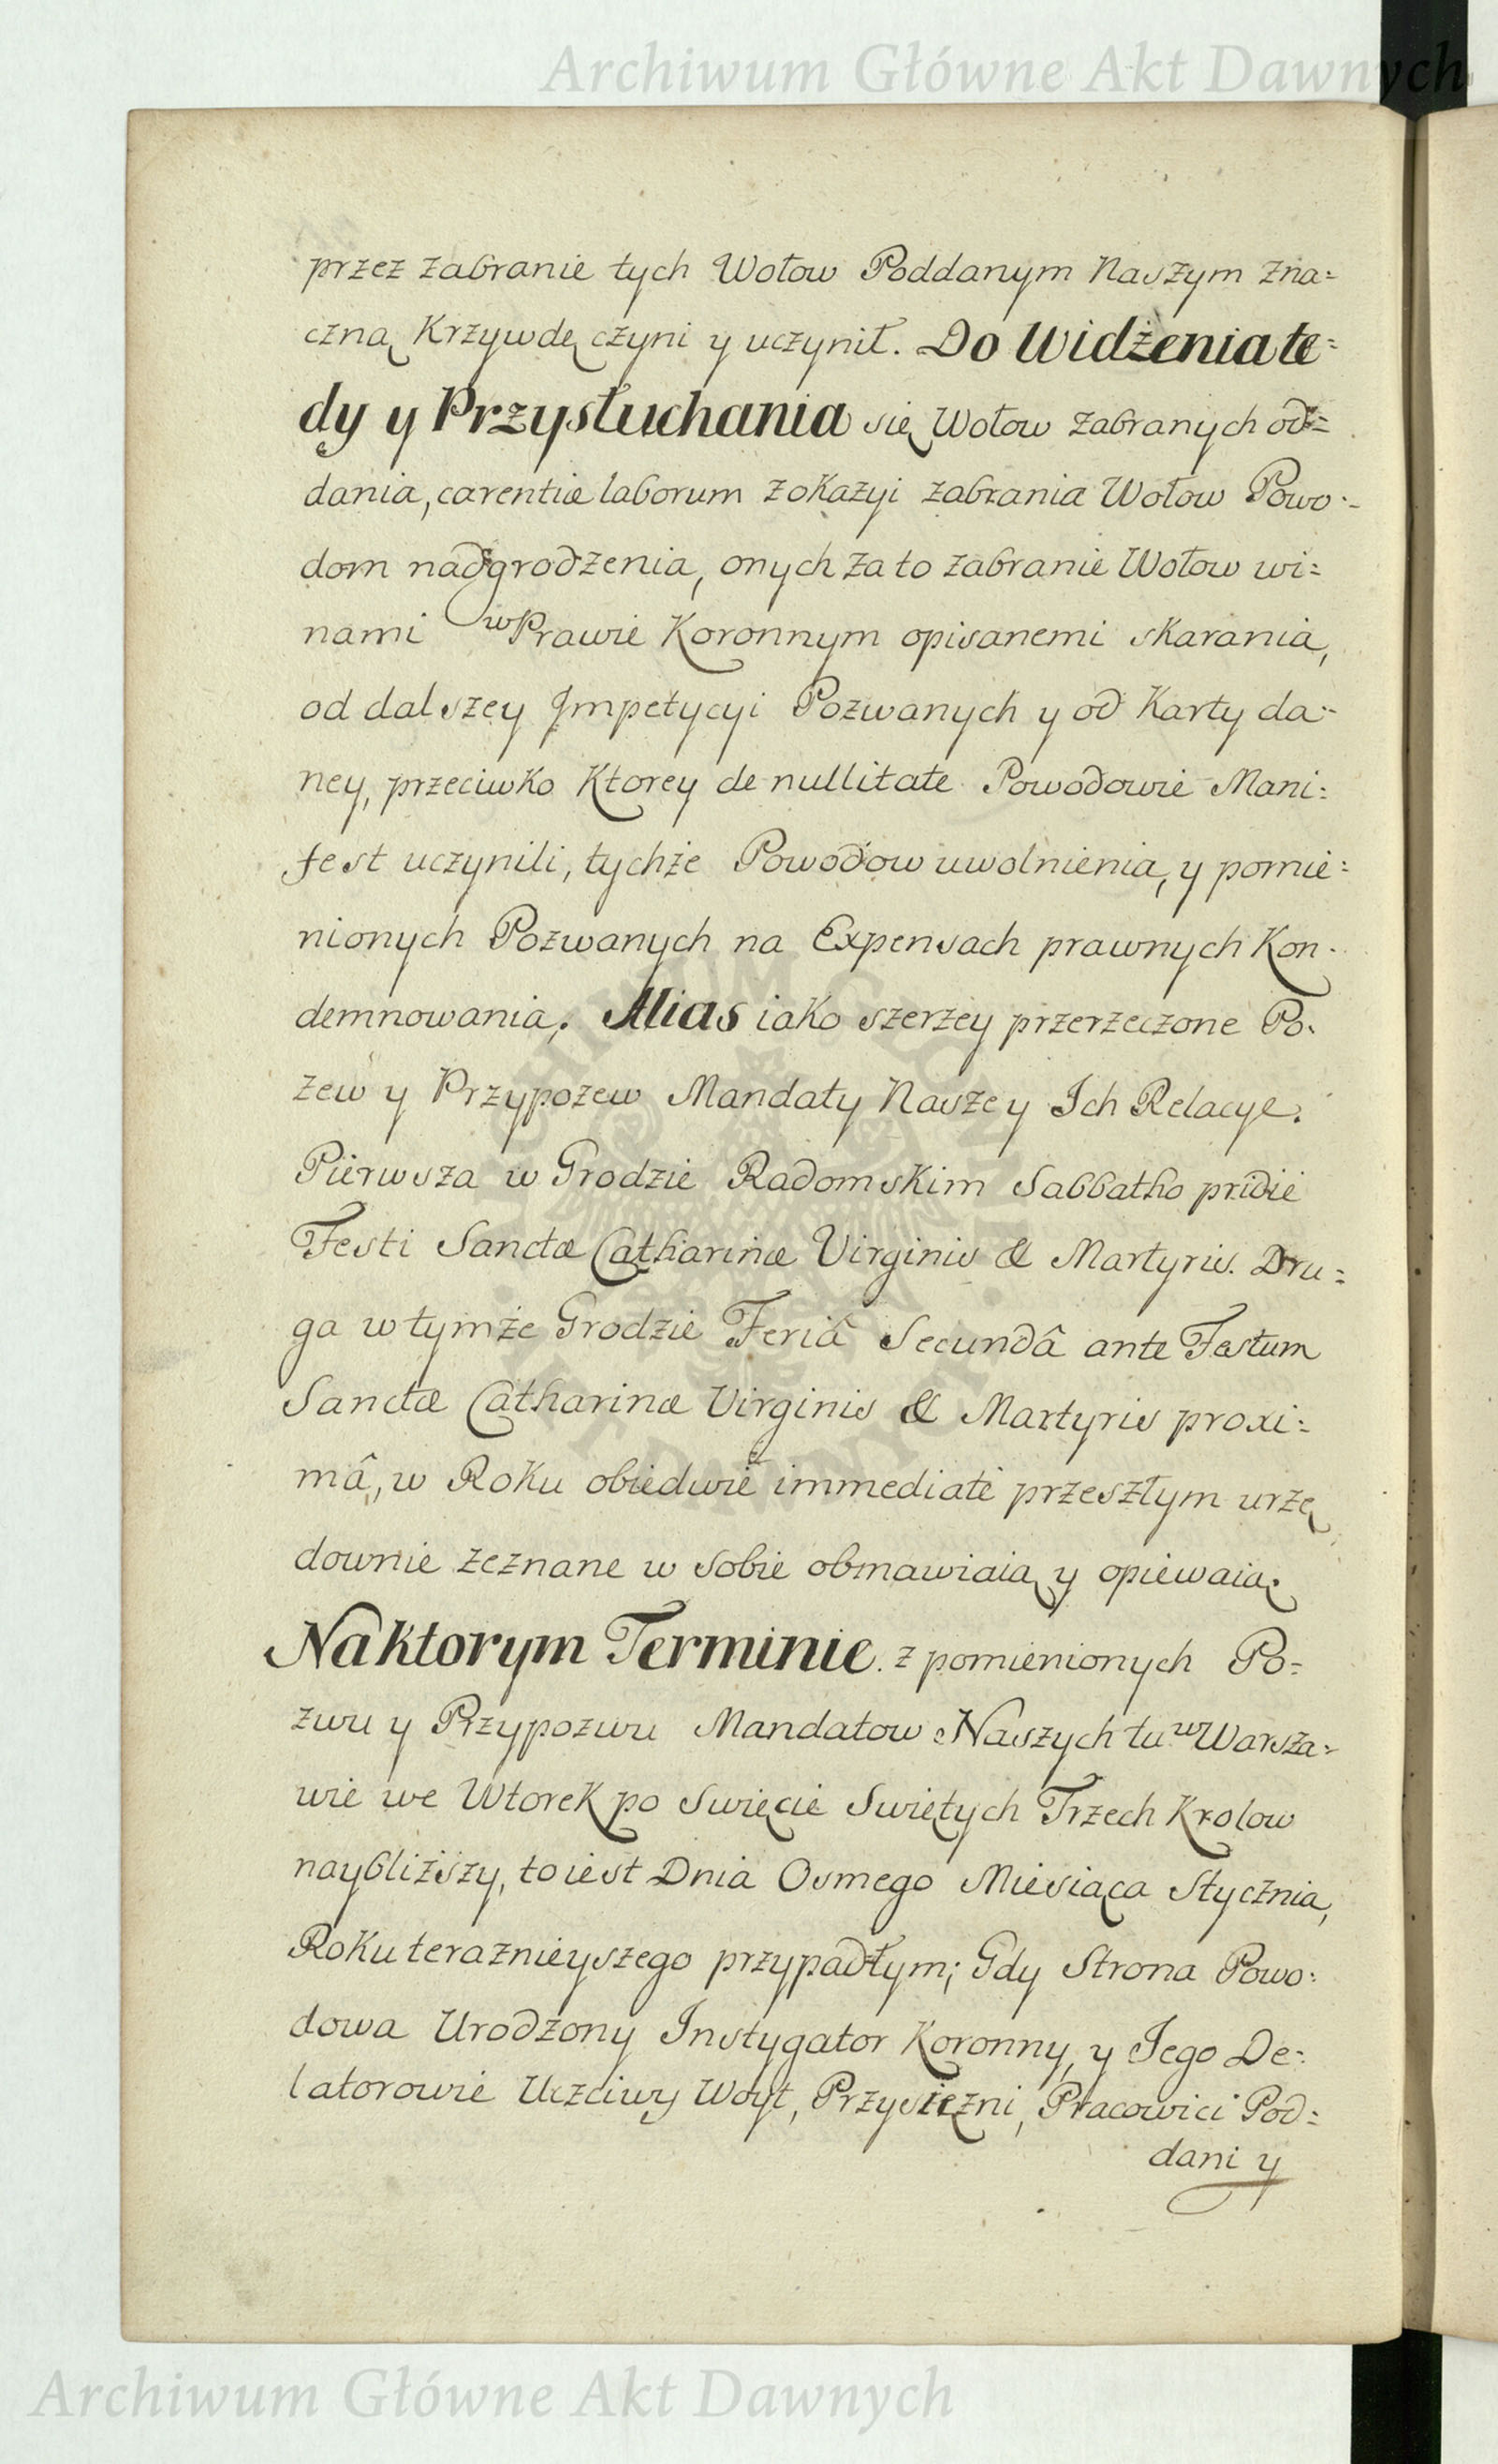 Archiwum Główne Akt Dawnych
przez zabranie tych Wołow Poddanym Naszym zna=
czną Krzywdę czyni y uczynił. Do Widżenia te=
dy y Przysłuchania się Wołow zabranych od=
dania, carentiæ laborum z okazyi zabrania Wołow Powo=
dom nadgrodzenia, onych za to zabranie Wołow wi=
nami w Prawie Koronnym opisanemi skarania,
od dalszey Impetycyi Pozwanych y od Karty da=
ney, przeciwko Ktorey de nullitate Powodowie Mani=
fest uczynili, tychże Powodow uwolnienia, y pomie=
nionych Pozwanych na Expensach prawnych Kon=
demnowania. Alias iako szerzey przerzeczone Po=
zew y Przypozew Mandaty Nasze y Ich Relacye.
Pierwsza w Grodzie Radomskim Sabbatho pridie
Festi Sanctæ Catharinæ Virginis & Martyris. Dru=
ga w tymże Grodzie Feriâ Secundâ ante Festum
Sanctæ Catharinæ Virginis & Martyris proxi=
mâ, w Roku obiedwie immediate przeszłym urzę
downie zeznane w sobie obmawiaią y opiewaią.
Na ktorym Terminie z pomienionych Po=
zwu y Przypozwu Mandatow Naszych tu w Warsza=
wie we Wtorek po Swięcie Swiętych Trzech Krolow
naybliższy, to iest Dnia Osmego Miesiąca Stycznia,
Roku teraznieyszego przypadłym; Gdy Strona Powo=
dowa Urodzony Instygator Koronny, y Iego De=
latorowie Uczciwy Woyt, Przysiężni, Pracowici Pod=
dani y
Archiwum Główne Akt Dawnych